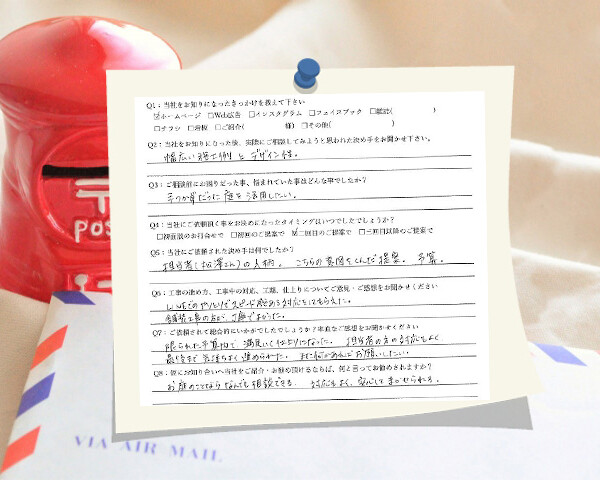 Q1：当社をお知りになったきっかけを教えて下さい
☑ホームページ □Web広告 □インスタグラム □フェイスブック □雑誌( )
□チラシ □看板 □ご紹介( 様) □その他( )
Q2：当社をお知りになった後、実際にご相談してみようと思われた決め手をお聞かせ下さい。
幅広い施工例とデザイン性。
Q3：ご相談前にお困りだった事、悩まれていた事はどんな事でしたか？
手つかずだった庭を活用したい。
Q4：当社にご依頼頂く事をお決めになったタイミングはいつでしたでしょうか？
□初面談のお打合せで □初回のご提案で ☑二回目のご提案で □三回目以降のご提案で
Q5：当社にご依頼された決め手は何でしたか？
担当者(松澤さん)の人柄。こちらの意図をくんだ提案。予算。
Q6：工事の進め方、工事中の対応、工期、仕上りについてご意見・ご感想をお聞かせください
LINEでのやりとりでスピード感ある対応をしてもらえた。
工事の方が、丁寧でよかった。
Q7：ご依頼されて総合的にいかがでしたでしょうか？率直なご感想をお聞かせください
限られた予算内で満足いく仕上りになった。担当者の方の対応もよく、
最後まで気持ちよく進められた。また何かあればお願いしたい。
Q8：仮にお知り合いへ当社をご紹介・お勧め頂けるならば、何と言ってお勧めされますか？
お庭のことならなんでも相談できる。対応もよく、安心してまかせられる。
POS
VIA AIR MAIL